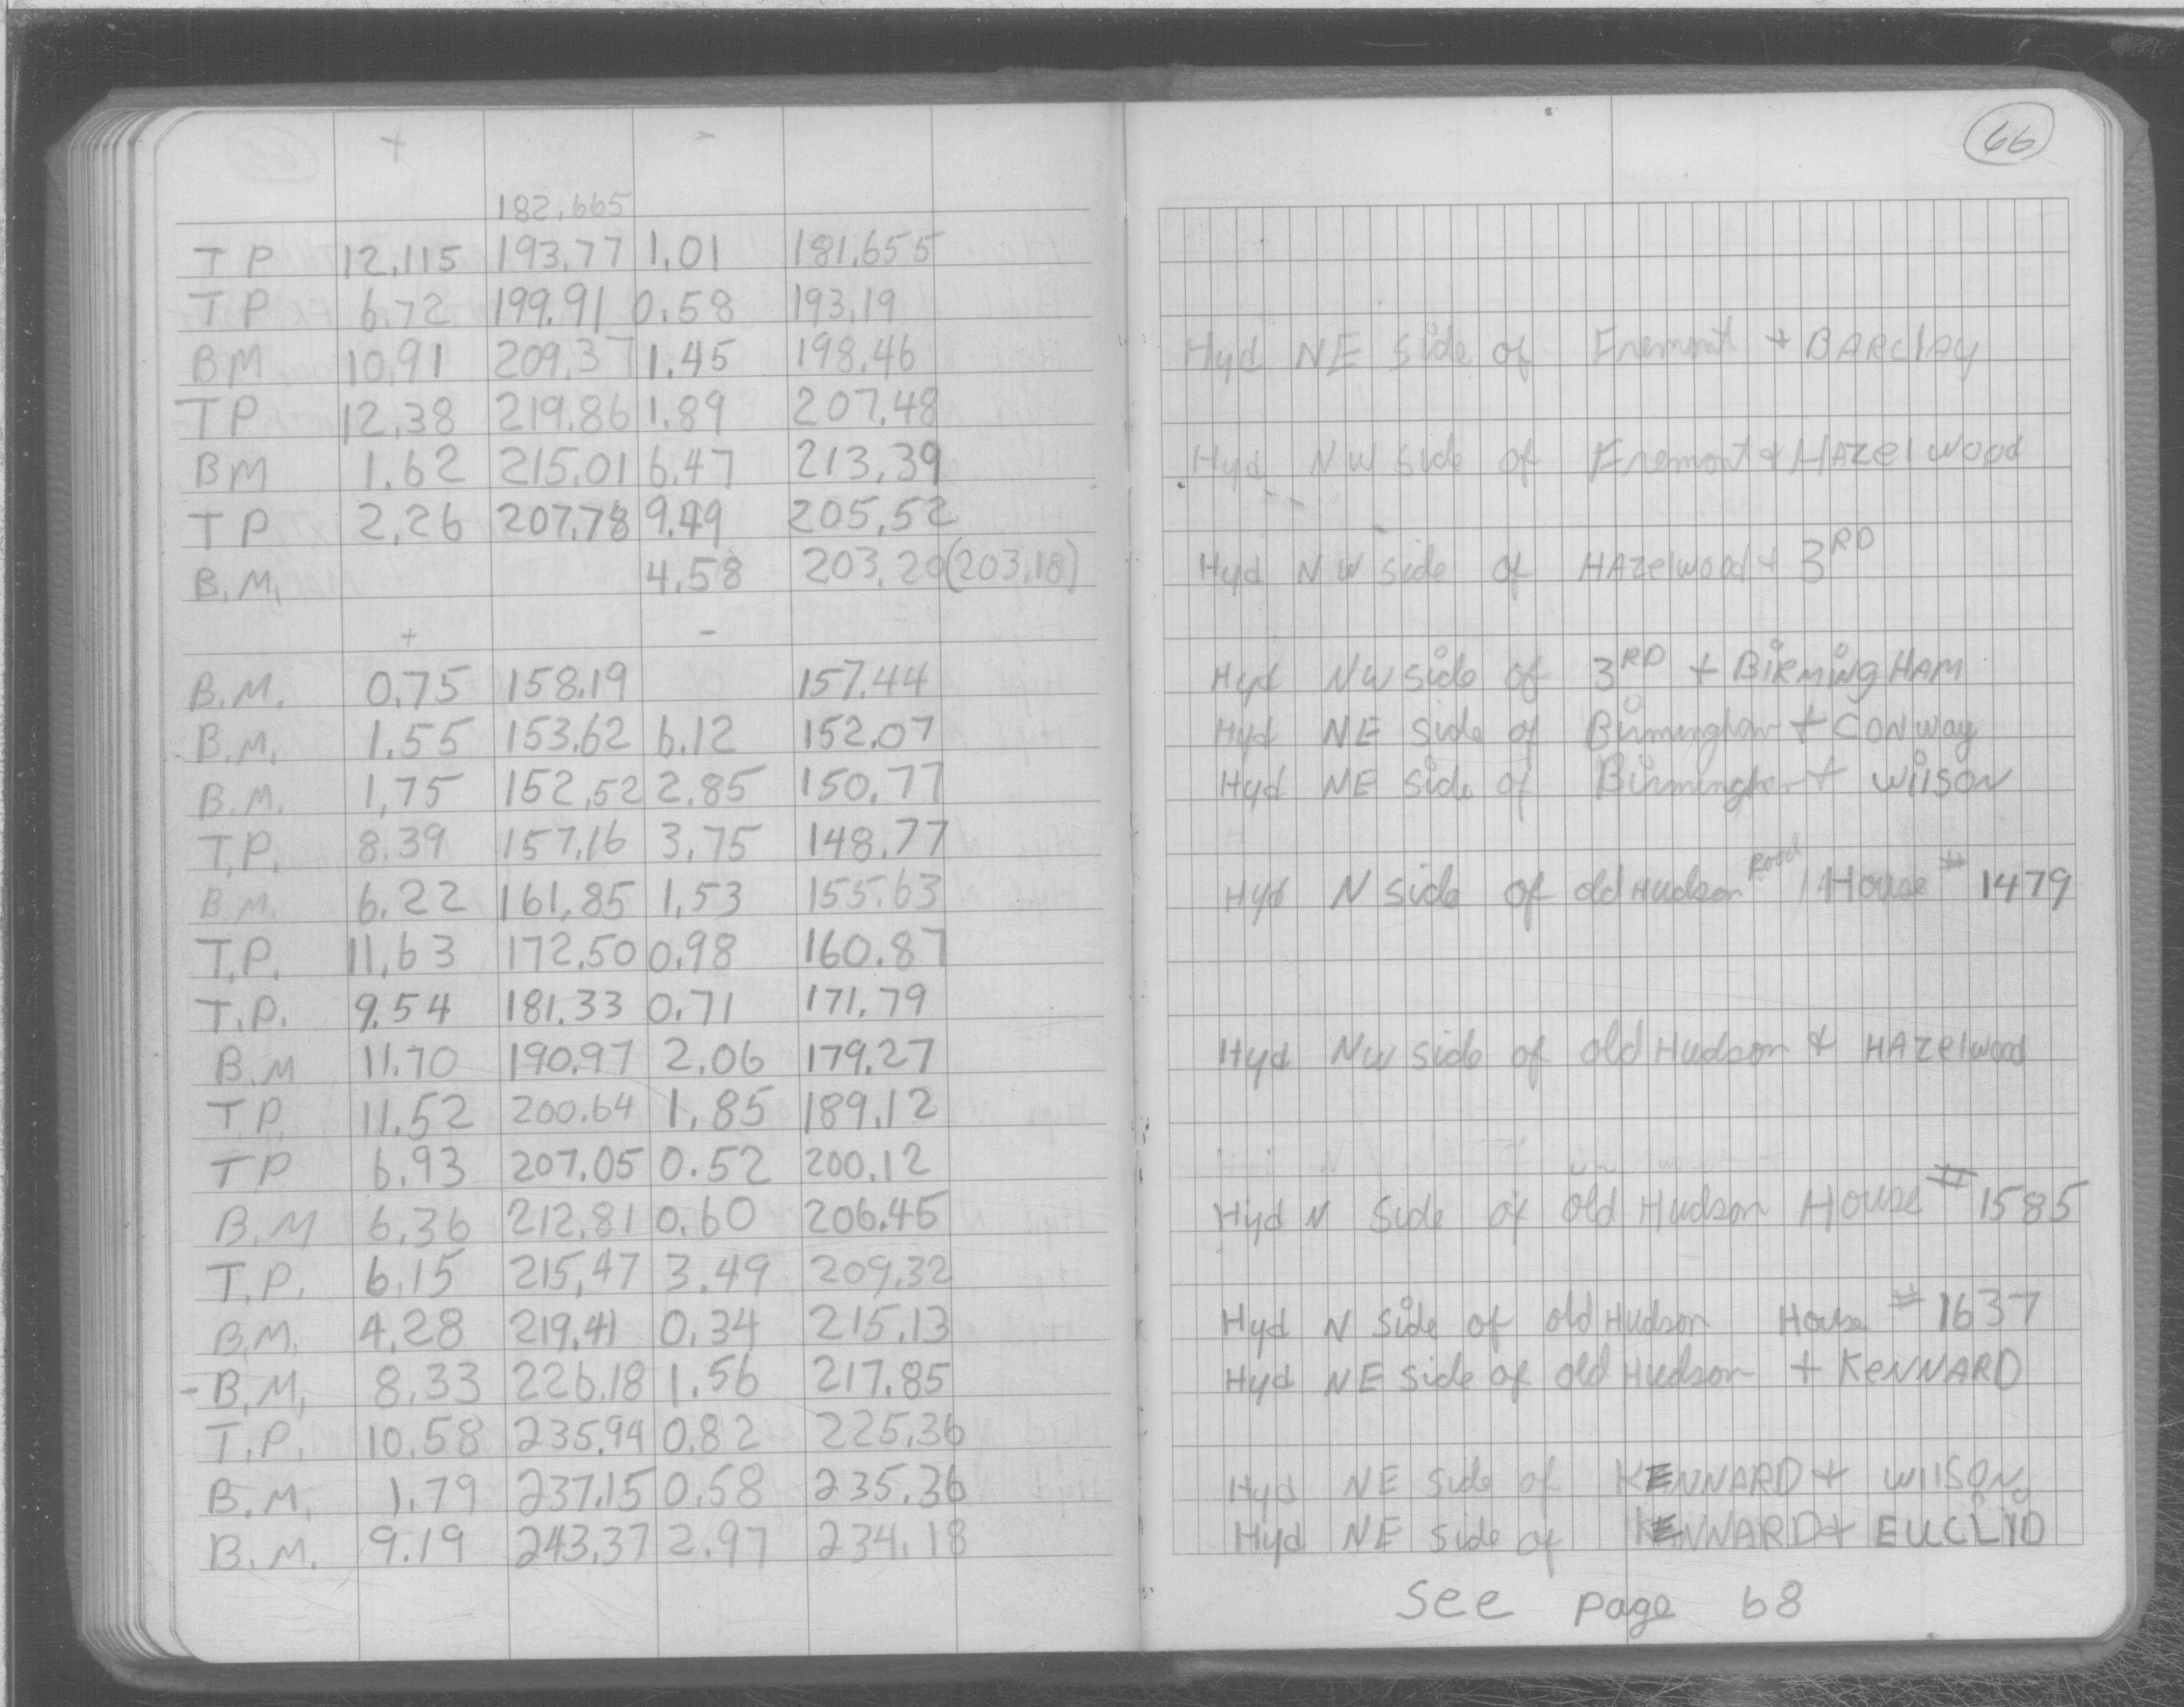 66
+ -
182.665
T P 12.115 193.77 1.01 181.655
T P 6.72 199.91 0.58 193.19
BM 10.91 209.37 1.45 198.46 Hyd NE side of Fremont + BARCLAY
TP 12.38 219.86 1.89 207.48
BM 1.62 215.01 6.47 213.39 Hyd NW side of Fremont + HAzelwood
TP 2.26 207.78 9.49 205.52
B.M. 4.58 203.20 (203.18) Hyd NW side of HAzelwood + 3RD
+ -
B.M. 0.75 158.19 157.44 Hyd NW side of 3RD + BiRMingHAM
B.M. 1.55 153.62 6.12 152.07 Hyd NE side of Birmingham + CONway
B.M. 1.75 152.52 2.85 150.77 Hyd NE side of Birmingham + WilSON
T.P. 8.39 157.16 3.75 148.77
B.M. 6.22 161.85 1.53 155.63 Hyd N side of old Hudson Road / House # 1479
T.P. 11.63 172.50 0.98 160.87
T.P. 9.54 181.33 0.71 171.79
B.M 11.70 190.97 2.06 179.27 Hyd NW side of old Hudson + HAzelwood
T.P. 11.52 200.64 1.85 189.12
TP 6.93 207.05 0.52 200.12
B.M 6.36 212.81 0.60 206.45 Hyd N Side of old Hudson House # 1585
T.P. 6.15 215.47 3.49 209.32
B.M. 4.28 219.41 0.34 215.13 Hyd N Side of old Hudson House # 1637
- B.M. 8.33 226.18 1.56 217.85 Hyd NE side of old Hudson + KeNNARD
T.P. 10.58 235.94 0.82 225.36
B.M. 1.79 237.15 0.58 235.36 Hyd NE side of KENNARD + WilSON
B.M. 9.19 243.37 2.97 234.18 Hyd NE side of KENNARD + EUCLiD
See page 68